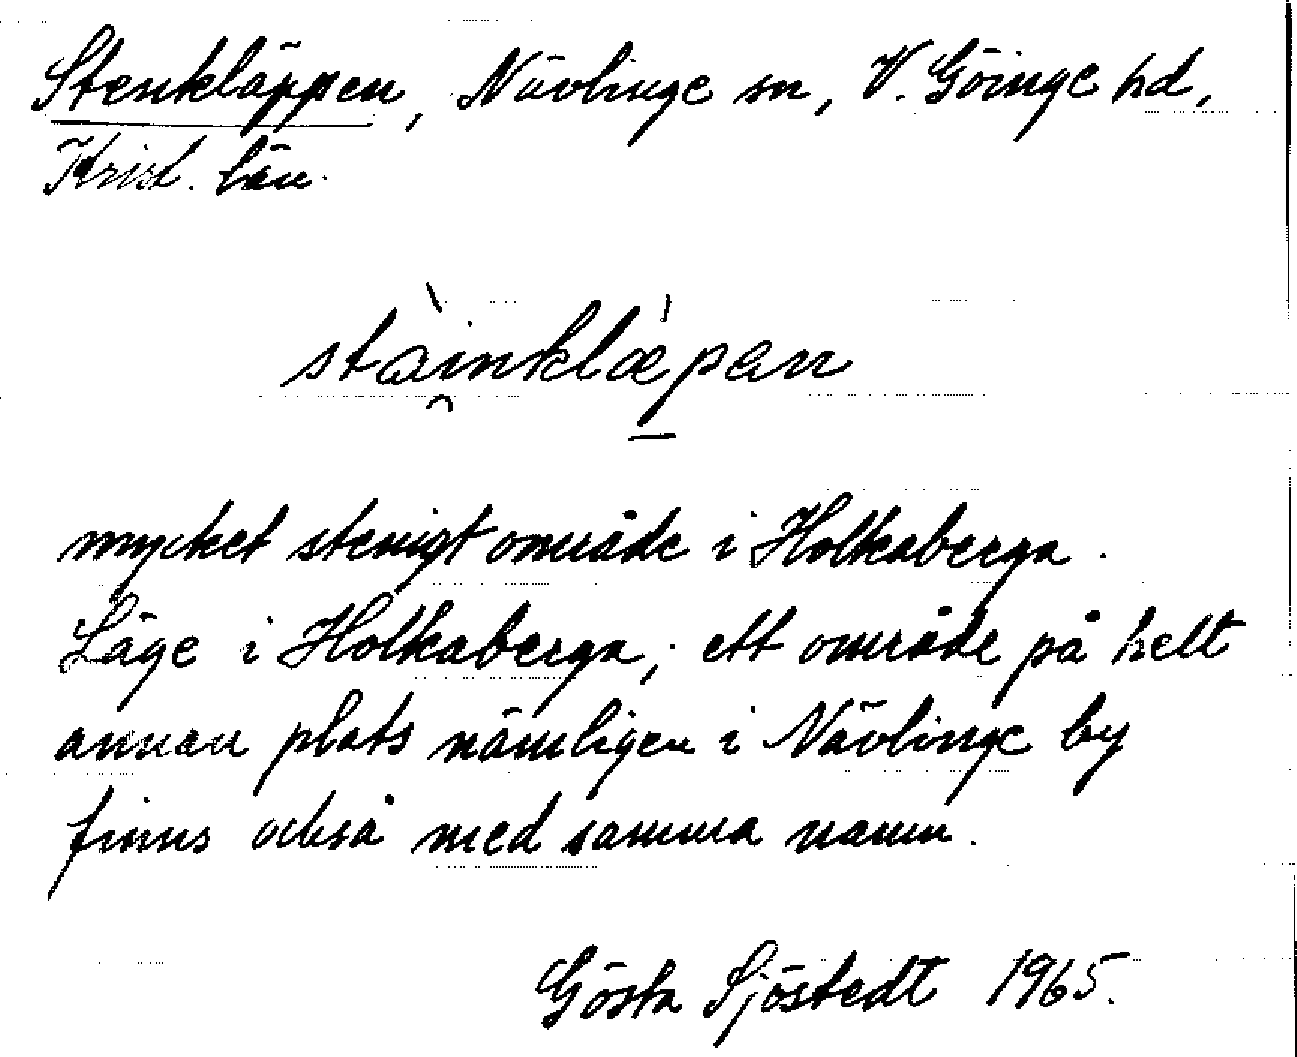 Stenkläppen, Nävlinge sn, V. Göinge hd,
Krist. län.
stàinklǽpen
mycket stenigt område i Holkaberga.
Läge i Holkaberga; ett område på helt
annan plats nämligen i Nävlinge by
finns också med samma namn.
Gösta Sjöstedt 1965.